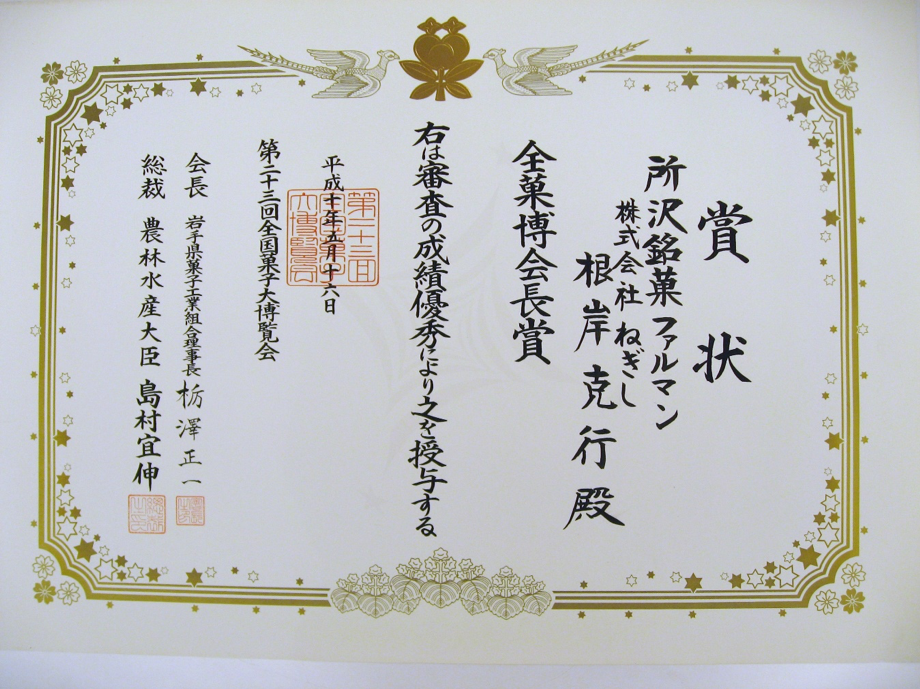 賞状
所沢銘菓ファルマン
株式会社ねぎし
根岸克行殿
全菓博会長賞
右は審査の成績優秀により之を授与する
平成十年五月十六日
第二十三回全国菓子大博覧会
会長 岩手県菓子工業組合理事長 栃澤正一
総裁 農林水産大臣 島村宜伸